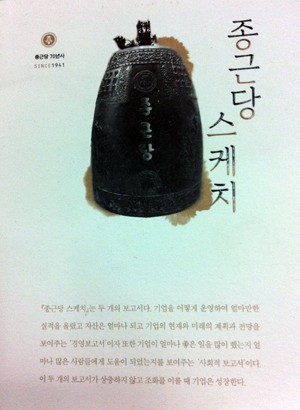 종근당 70년사
SINCE1941
종근당
스케치
종근당
『종근당 스케치』는 두 개의 보고서다. 기업을 어떻게 운영하여 얼마만한
실적을 올렸고 자산은 얼마나 되고 기업의 현재와 미래의 계획과 전망을
보여주는 '경영보고서'이자 또한 기업이 얼마나 좋은 일을 많이 했는지 얼
마나 많은 사람들에게 도움이 되었는지를 보여주는 '사회적 보고서'이다.
이 두 개의 보고서가 상충하지 않고 조화를 이룰 때 기업은 성장한다.